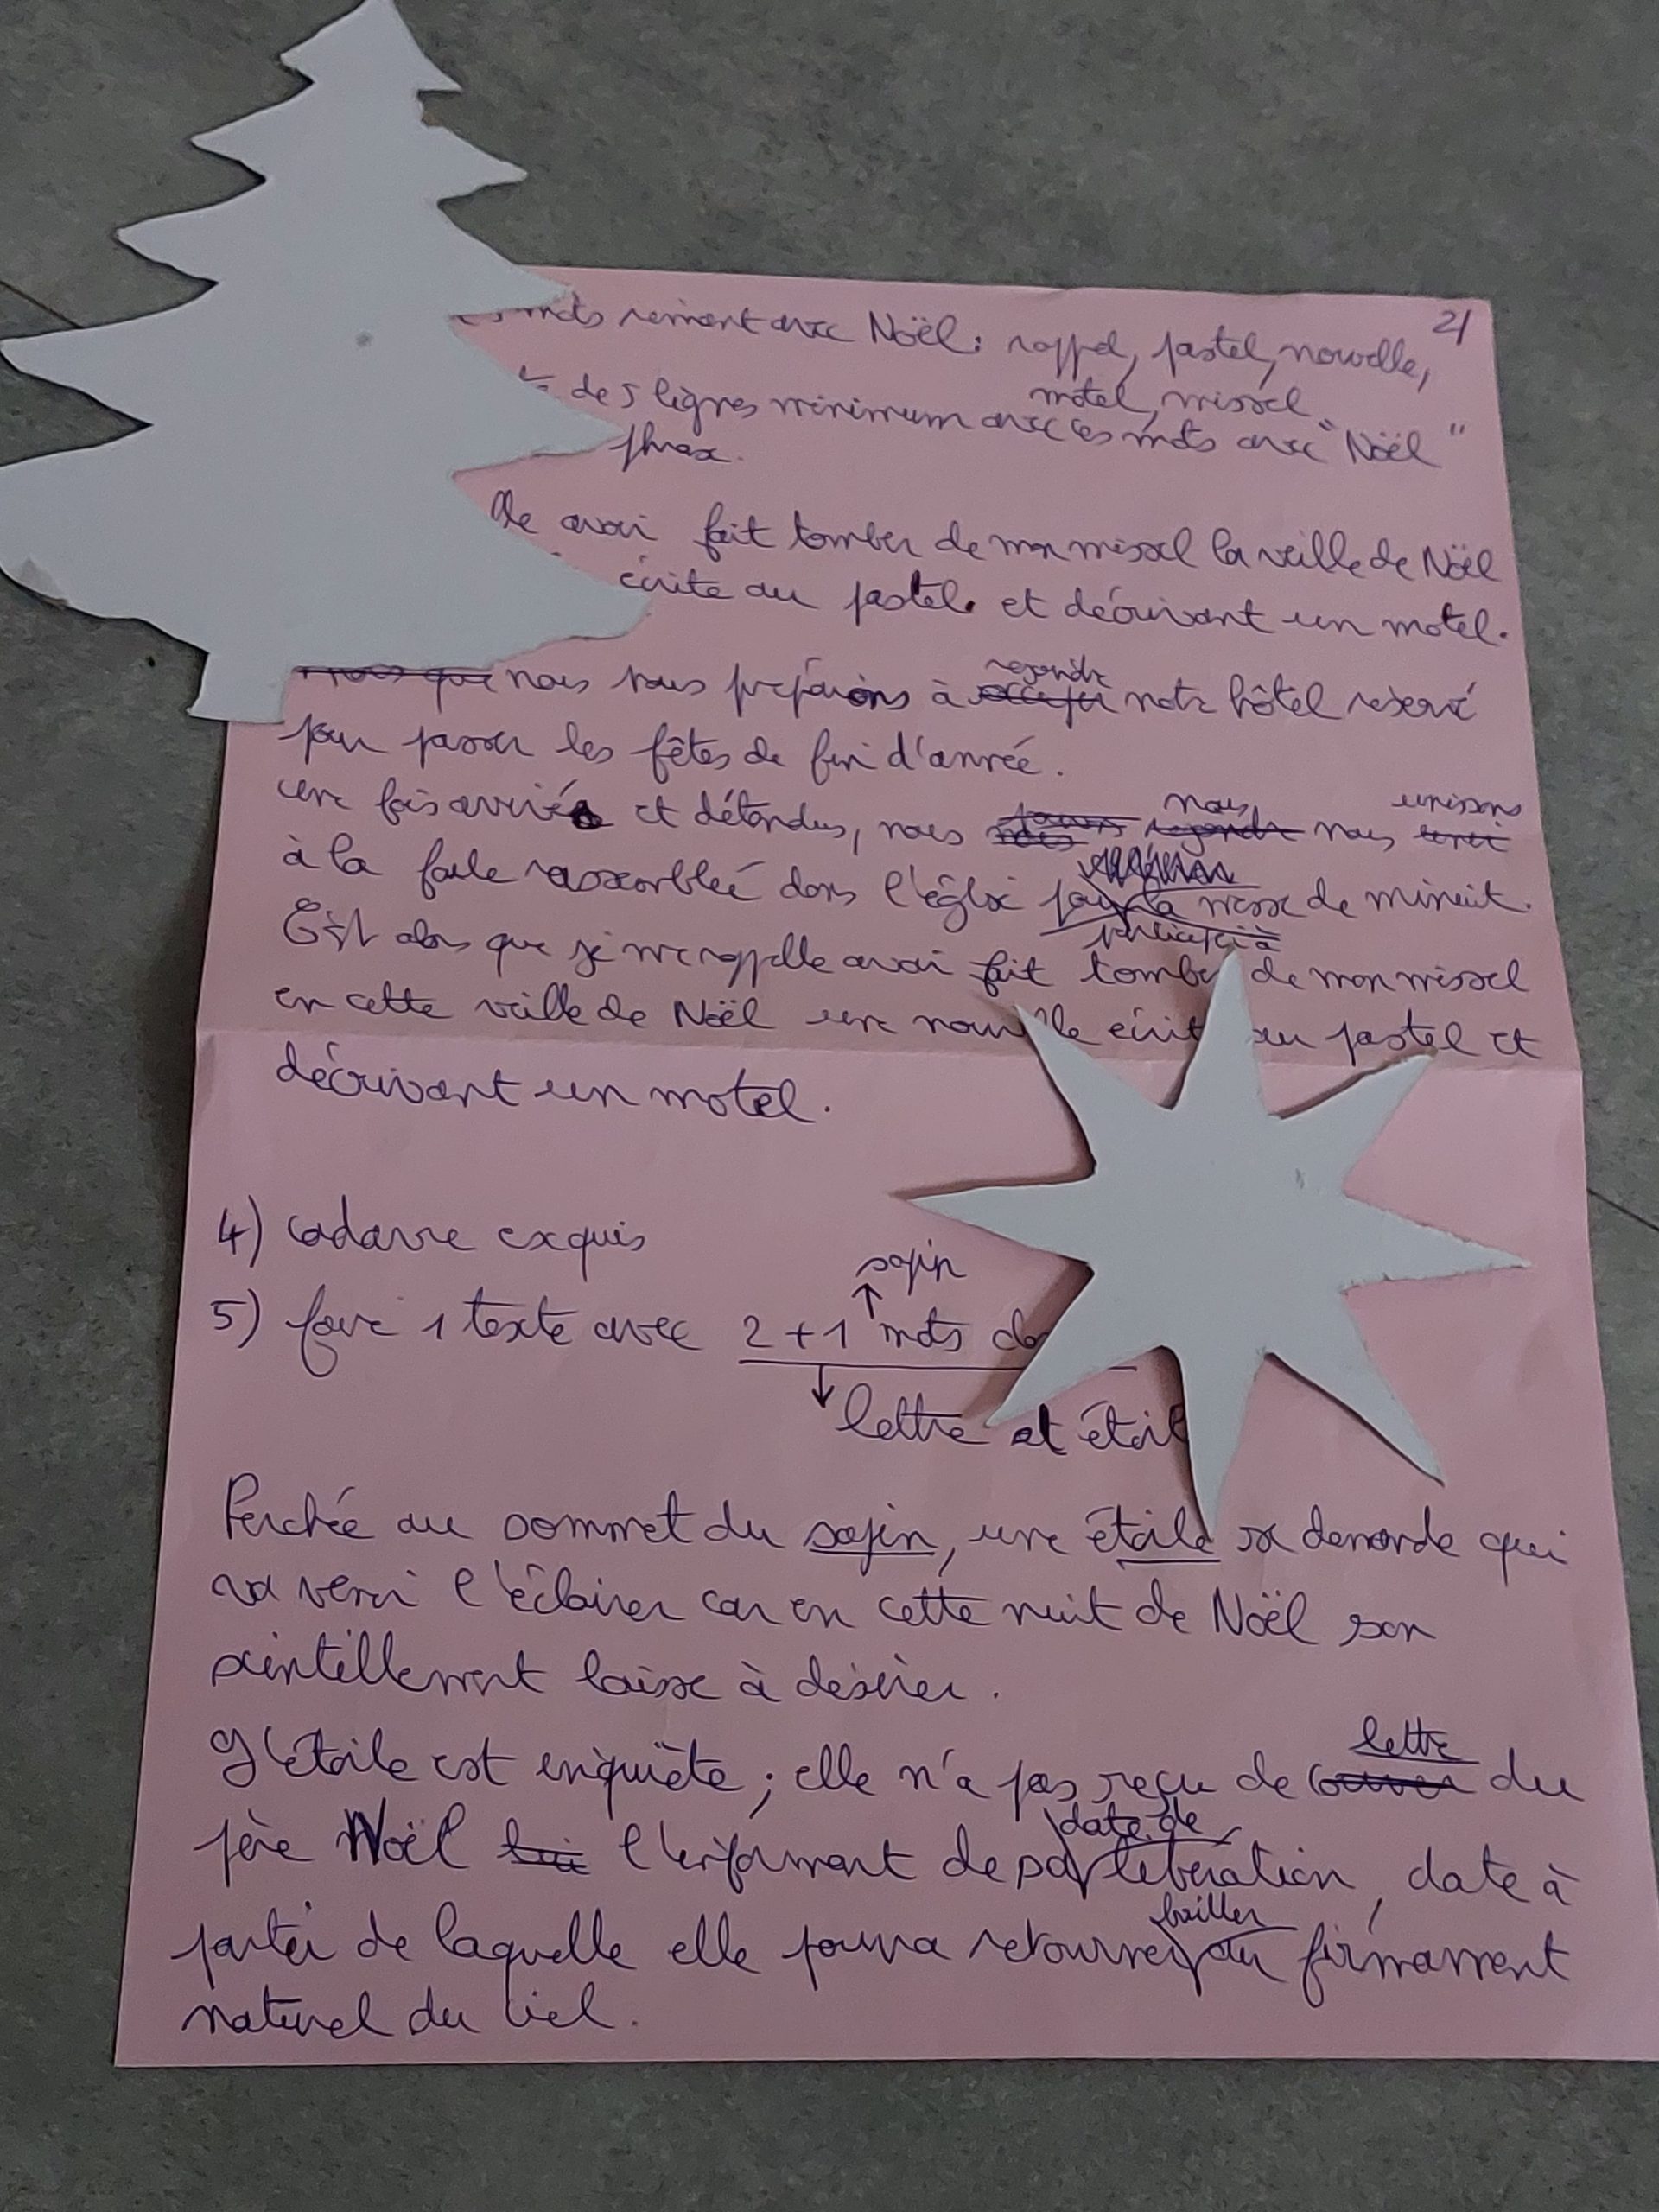 2/
mots rimant avec Noël : rappel, pastel, nouvelle,
motel, missel
de 5 lignes minimum avec les mots avec "Noël"
phrase.
avoir fait tomber de mon missel la veille de Noël
écrite au pastel et décrivant un motel.
nous nous préparions à rejoindre notre hôtel réservé
pour passer les fêtes de fin d'année.
une fois arrivés et détendus, nous nous unissons
à la foule rassemblée dans l'église messe de minuit.
C'est alors que je me rappelle avoir fait tomber de mon missel
en cette veille de Noël une nouvelle écrite au pastel et
décrivant un motel.
4) cadavre exquis
sapin
↑
5) faire 1 texte avec 2 + 1 mots
↓
lettre et étoile
Perchée au sommet du sapin, une étoile se demande qui
va venir l'éclairer car en cette nuit de Noël son
scintillement laisse à désirer.
L'étoile est inquiète ; elle n'a pas reçu de lettre du
père Noël l'informant de sa date de libération, date à
partir de laquelle elle pourra retourner briller au firmament
naturel du ciel.